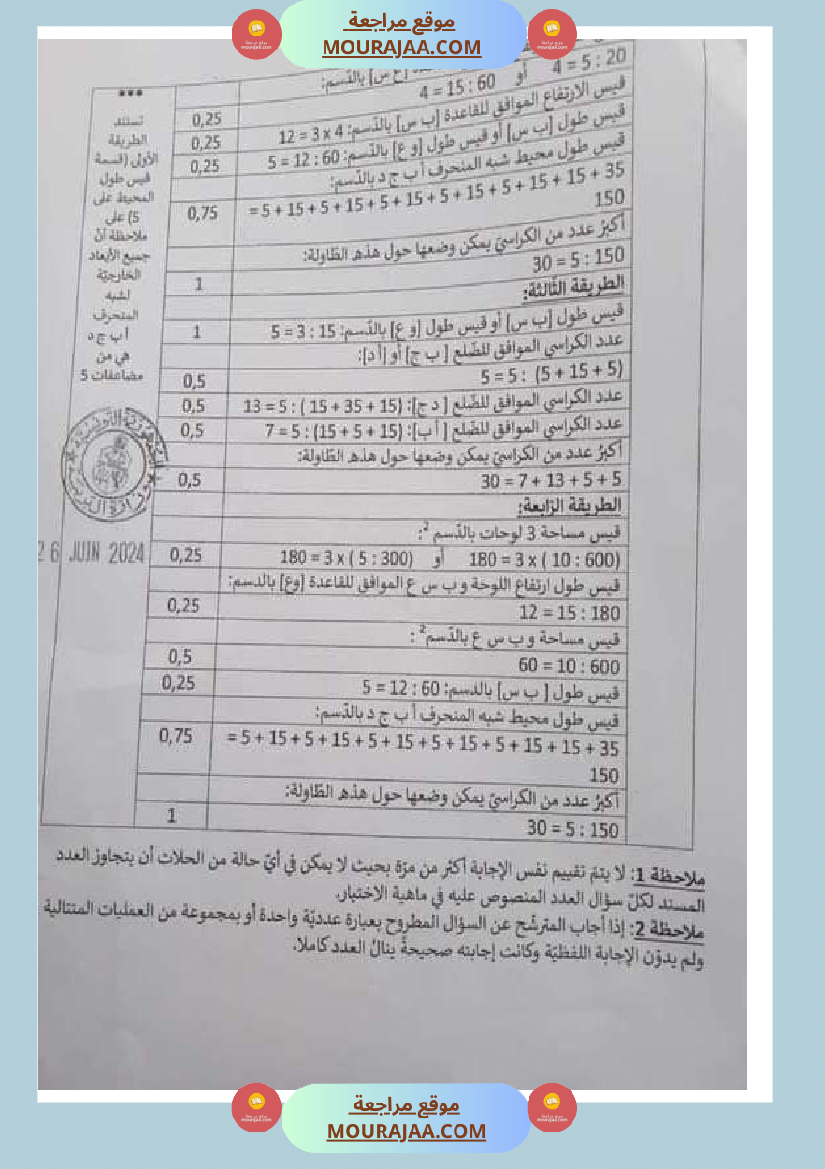 موقع مراجعة
MOURAJAA.COM
بالدّسم:
20 : 5 = 4 أو 60 : 15 = 4
0,25
قيس الارتفاع الموافق للقاعدة [ب س] بالدّسم: 4 x 3 = 12
0,25
قيس طول [ب س] أو قيس طول [و ع] بالدّسم: 60 : 12 = 5
0,25
قيس طول محيط شبه المنحرف أ ب ج د بالدّسم:
35 + 15 + 15 + 5 + 15 + 5 + 15 + 5 + 15 + 5 + 15 + 5 =
150
0,75
أكبرُ عدد من الكراسيّ يمكن وضعها حول هذه الطّاولة:
150 : 5 = 30
1
الطريقة الثّالثة:
قيس طول [ب س] أو قيس طول [و ع] بالدّسم: 15 : 3 = 5
1
عدد الكراسي الموافق للضّلع [ ب ج] أو [أ د]:
(5 + 15 + 5) : 5 = 5
0,5
عدد الكراسي الموافق للضّلع [ د ج]: (15 + 35 + 15 ) : 5 = 13
0,5
عدد الكراسي الموافق للضّلع [ أ ب]: (15 + 5 + 15) : 5 = 7
0,5
أكبرُ عدد من الكراسيّ يمكن وضعها حول هذه الطّاولة:
5 + 5 + 13 + 7 = 30
0,5
الطريقة الرّابعة:
قيس مساحة 3 لوحات بالدّسم²:
(600 : 10 ) x 3 = 180 أو (300 : 5 ) x 3 = 180
0,25
قيس طول ارتفاع اللوحة و ب س ع الموافق للقاعدة [وع] بالدسم:
180 : 15 = 12
0,25
قيس مساحة و ب س ع بالدّسم² :
600 : 10 = 60
0,5
قيس طول [ ب س] بالدسم: 60 : 12 = 5
0,25
قيس طول محيط شبه المنحرف أ ب ج د بالدّسم:
35 + 15 + 15 + 5 + 15 + 5 + 15 + 5 + 15 + 5 + 15 + 5 =
150
0,75
أكبرُ عدد من الكراسيّ يمكن وضعها حول هذه الطّاولة:
150 : 5 = 30
1
***
تستند
الطريقة
الأولى (قسمة
قيس طول
المحيط على
5) على
ملاحظة أنّ
جميع الأبعاد
الخارجيّة
لشبه
المنحرف
أ ب ج د
هي من
مضاعفات 5
26 JUIN 2024
ملاحظة 1: لا يتمّ تقييم نفس الإجابة أكثر من مرّة بحيث لا يمكن في أيّ حالة من الحلات أن يتجاوز العدد
المسند لكلّ سؤال العدد المنصوص عليه في ماهية الاختبار.
ملاحظة 2: إذا أجاب المترشّح عن السؤال المطروح بعبارة عدديّة واحدة أو بمجموعة من العمليات المتتالية
ولم يدوّن الإجابة اللفظيّة وكانت إجابته صحيحةً ينالُ العدد كاملا.
موقع مراجعة
MOURAJAA.COM